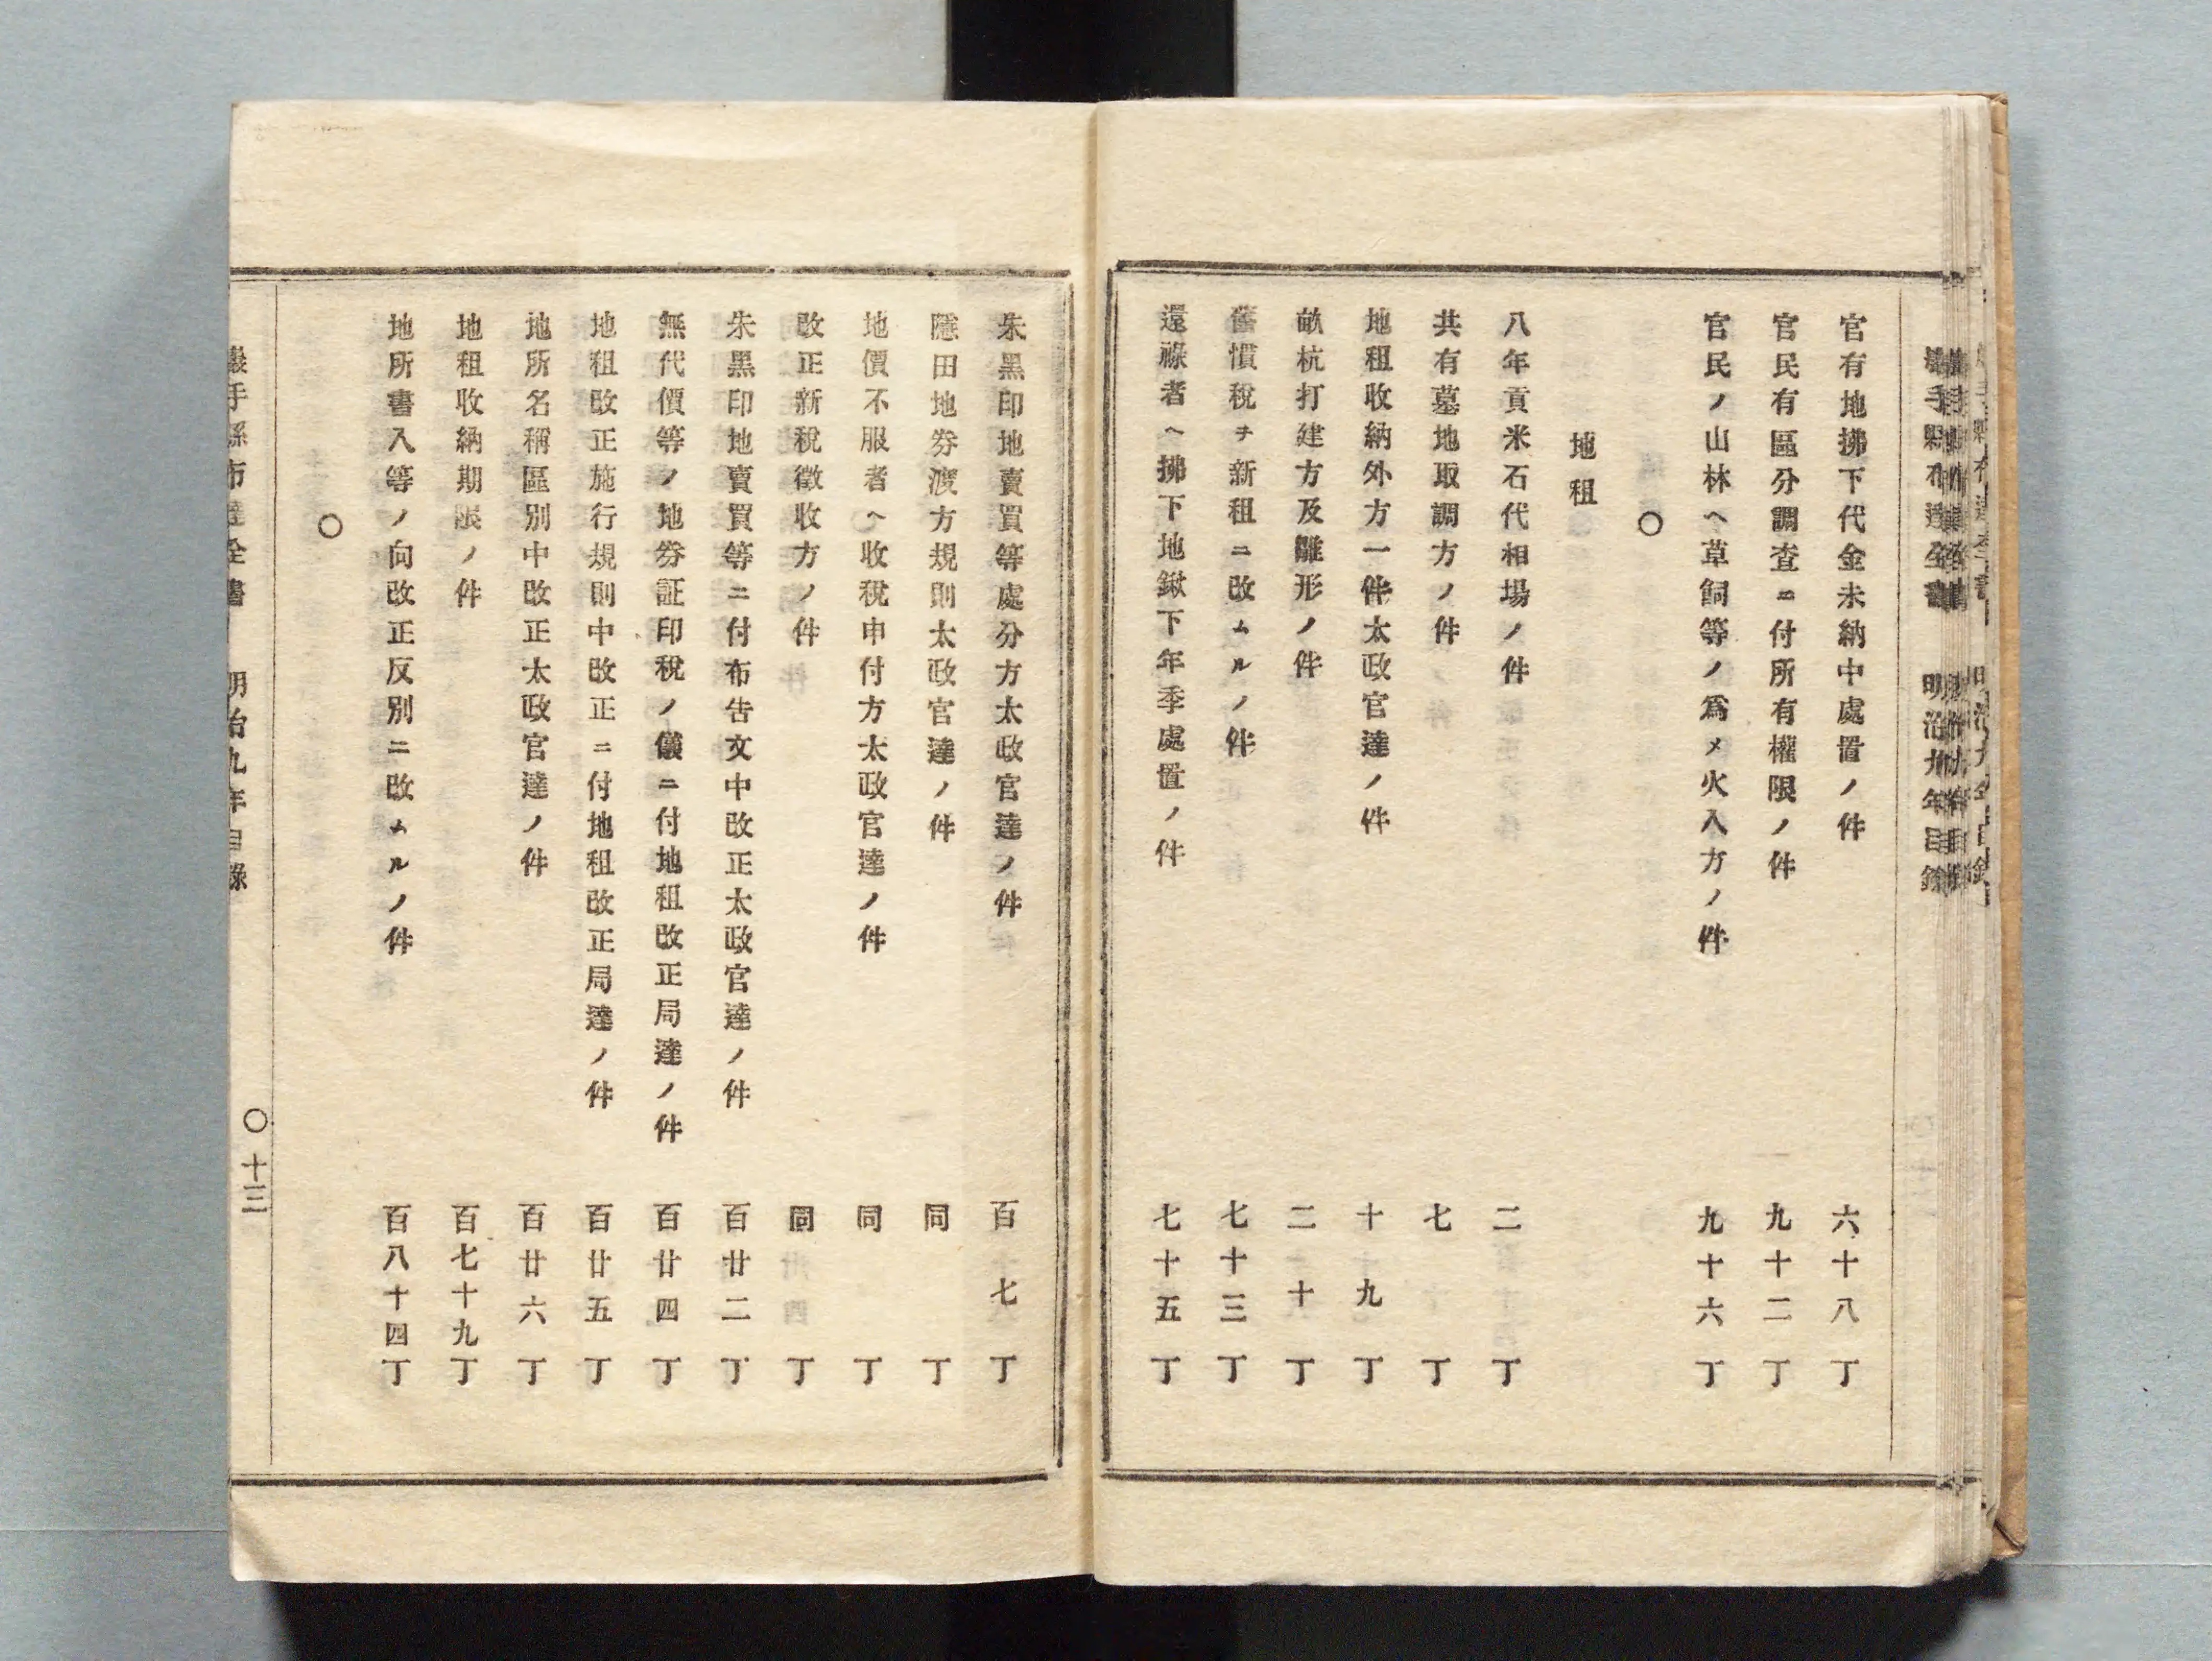 官有地拂下代金未納中處置ノ件 六十八丁
官民有區分調査ニ付所有權限ノ件 九十二丁
官民ノ山林ヘ草飼等ノ爲メ火入方ノ件 九十六丁
○
地租
八年貢米石代相場ノ件 二丁
共有墓地取調方ノ件 七丁
地租收納外方一件太政官達ノ件 十九丁
畝杭打建方及雛形ノ件 二十丁
舊慣稅ヲ新租ニ改ムルノ件 七十三丁
還祿者ヘ拂下地鍬下年季處置ノ件 七十五丁
朱黑印地賣買等處分方太政官達ノ件 百七丁
隱田地券渡方規則太政官達ノ件 同丁
地價不服者ヘ收稅申付方太政官達ノ件 同丁
改正新稅徵收方ノ件 同丁
朱黑印地賣買等ニ付布告文中改正太政官達ノ件 百廿二丁
無代價等ノ地券証印稅ノ儀ニ付地租改正局達ノ件 百廿四丁
地租改正施行規則中改正ニ付地租改正局達ノ件 百廿五丁
地所名稱區別中改正太政官達ノ件 百廿六丁
地租收納期限ノ件 百七十九丁
地所書入等ノ向改正反別ニ改ムルノ件 百八十四丁
○
巖手縣布達全書 明治九年目錄 ○十三